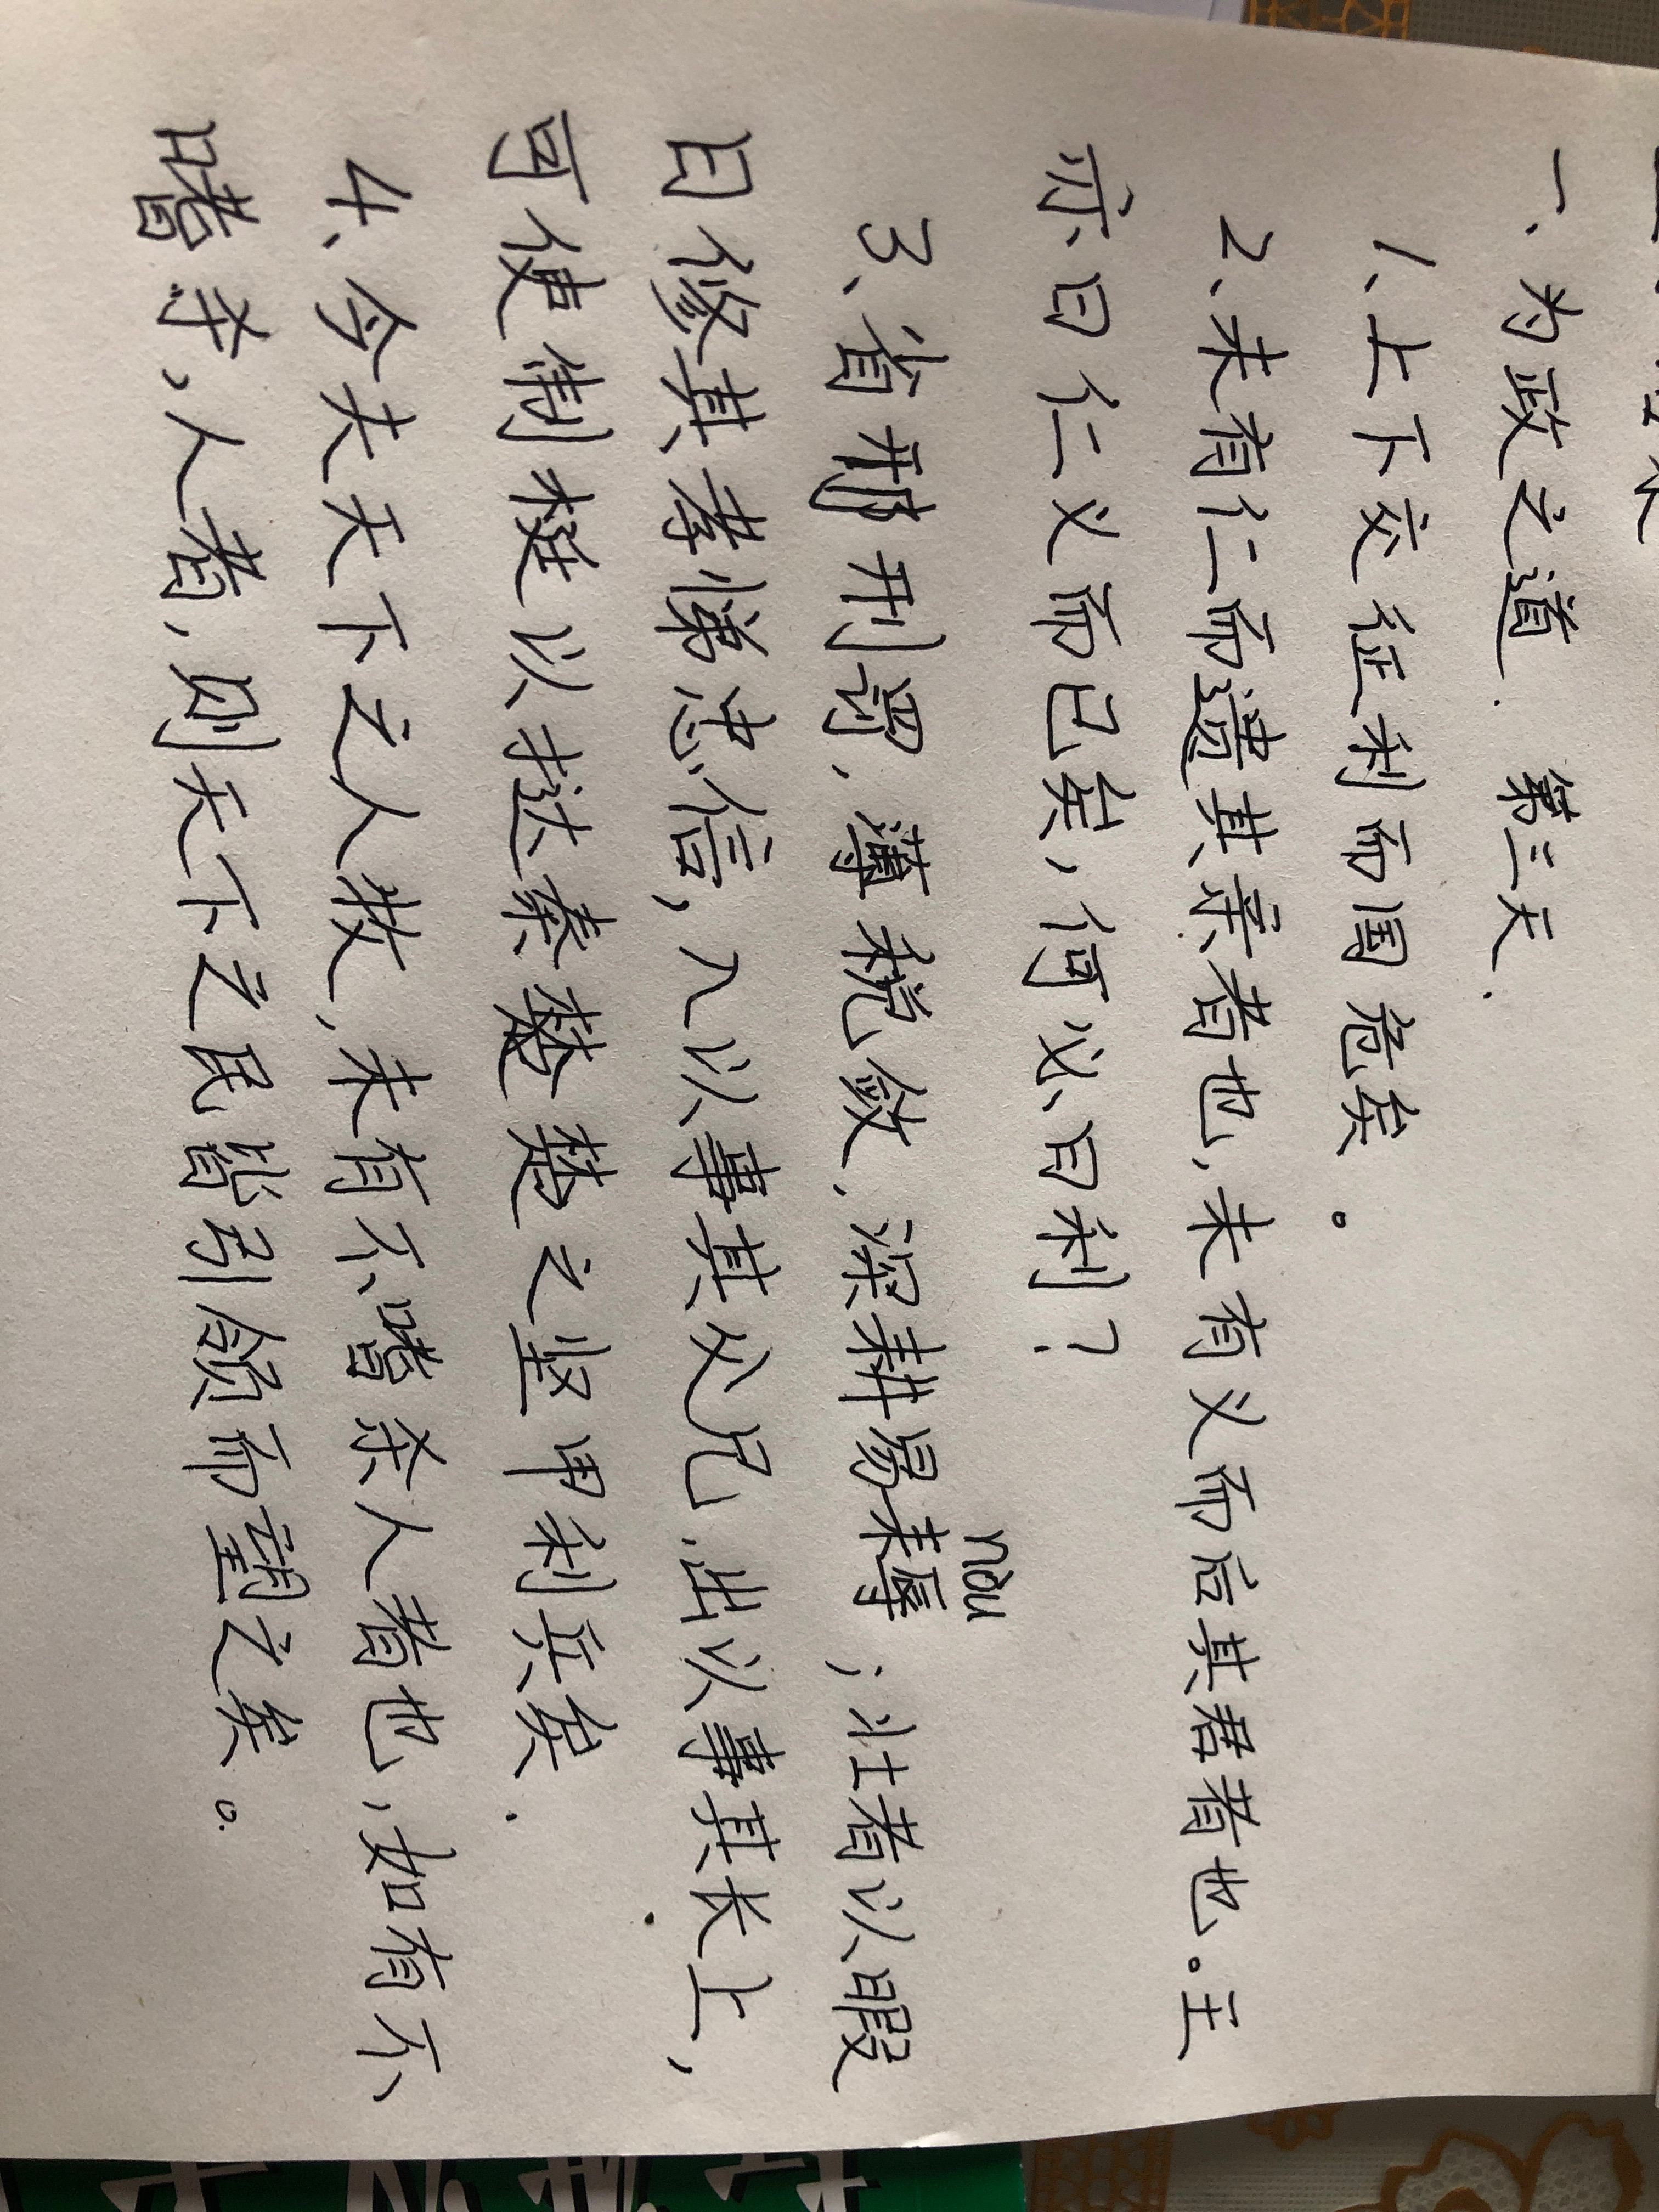 一、为政之道. 第三天.
1、上下交征利而国危矣。
2、未有仁而遗其亲者也, 未有义而后其君者也。王
亦曰仁义而已矣, 何必曰利?
3、省刑罚, 薄税敛, 深耕易耨; 壮者以暇
nòu
日修其孝悌忠信, 入以事其父兄, 出以事其长上,
可使制梃以挞秦楚之坚甲利兵矣.
4、今夫天下之人牧, 未有不嗜杀人者也, 如有不
嗜杀人者, 则天下之民皆引领而望之矣。